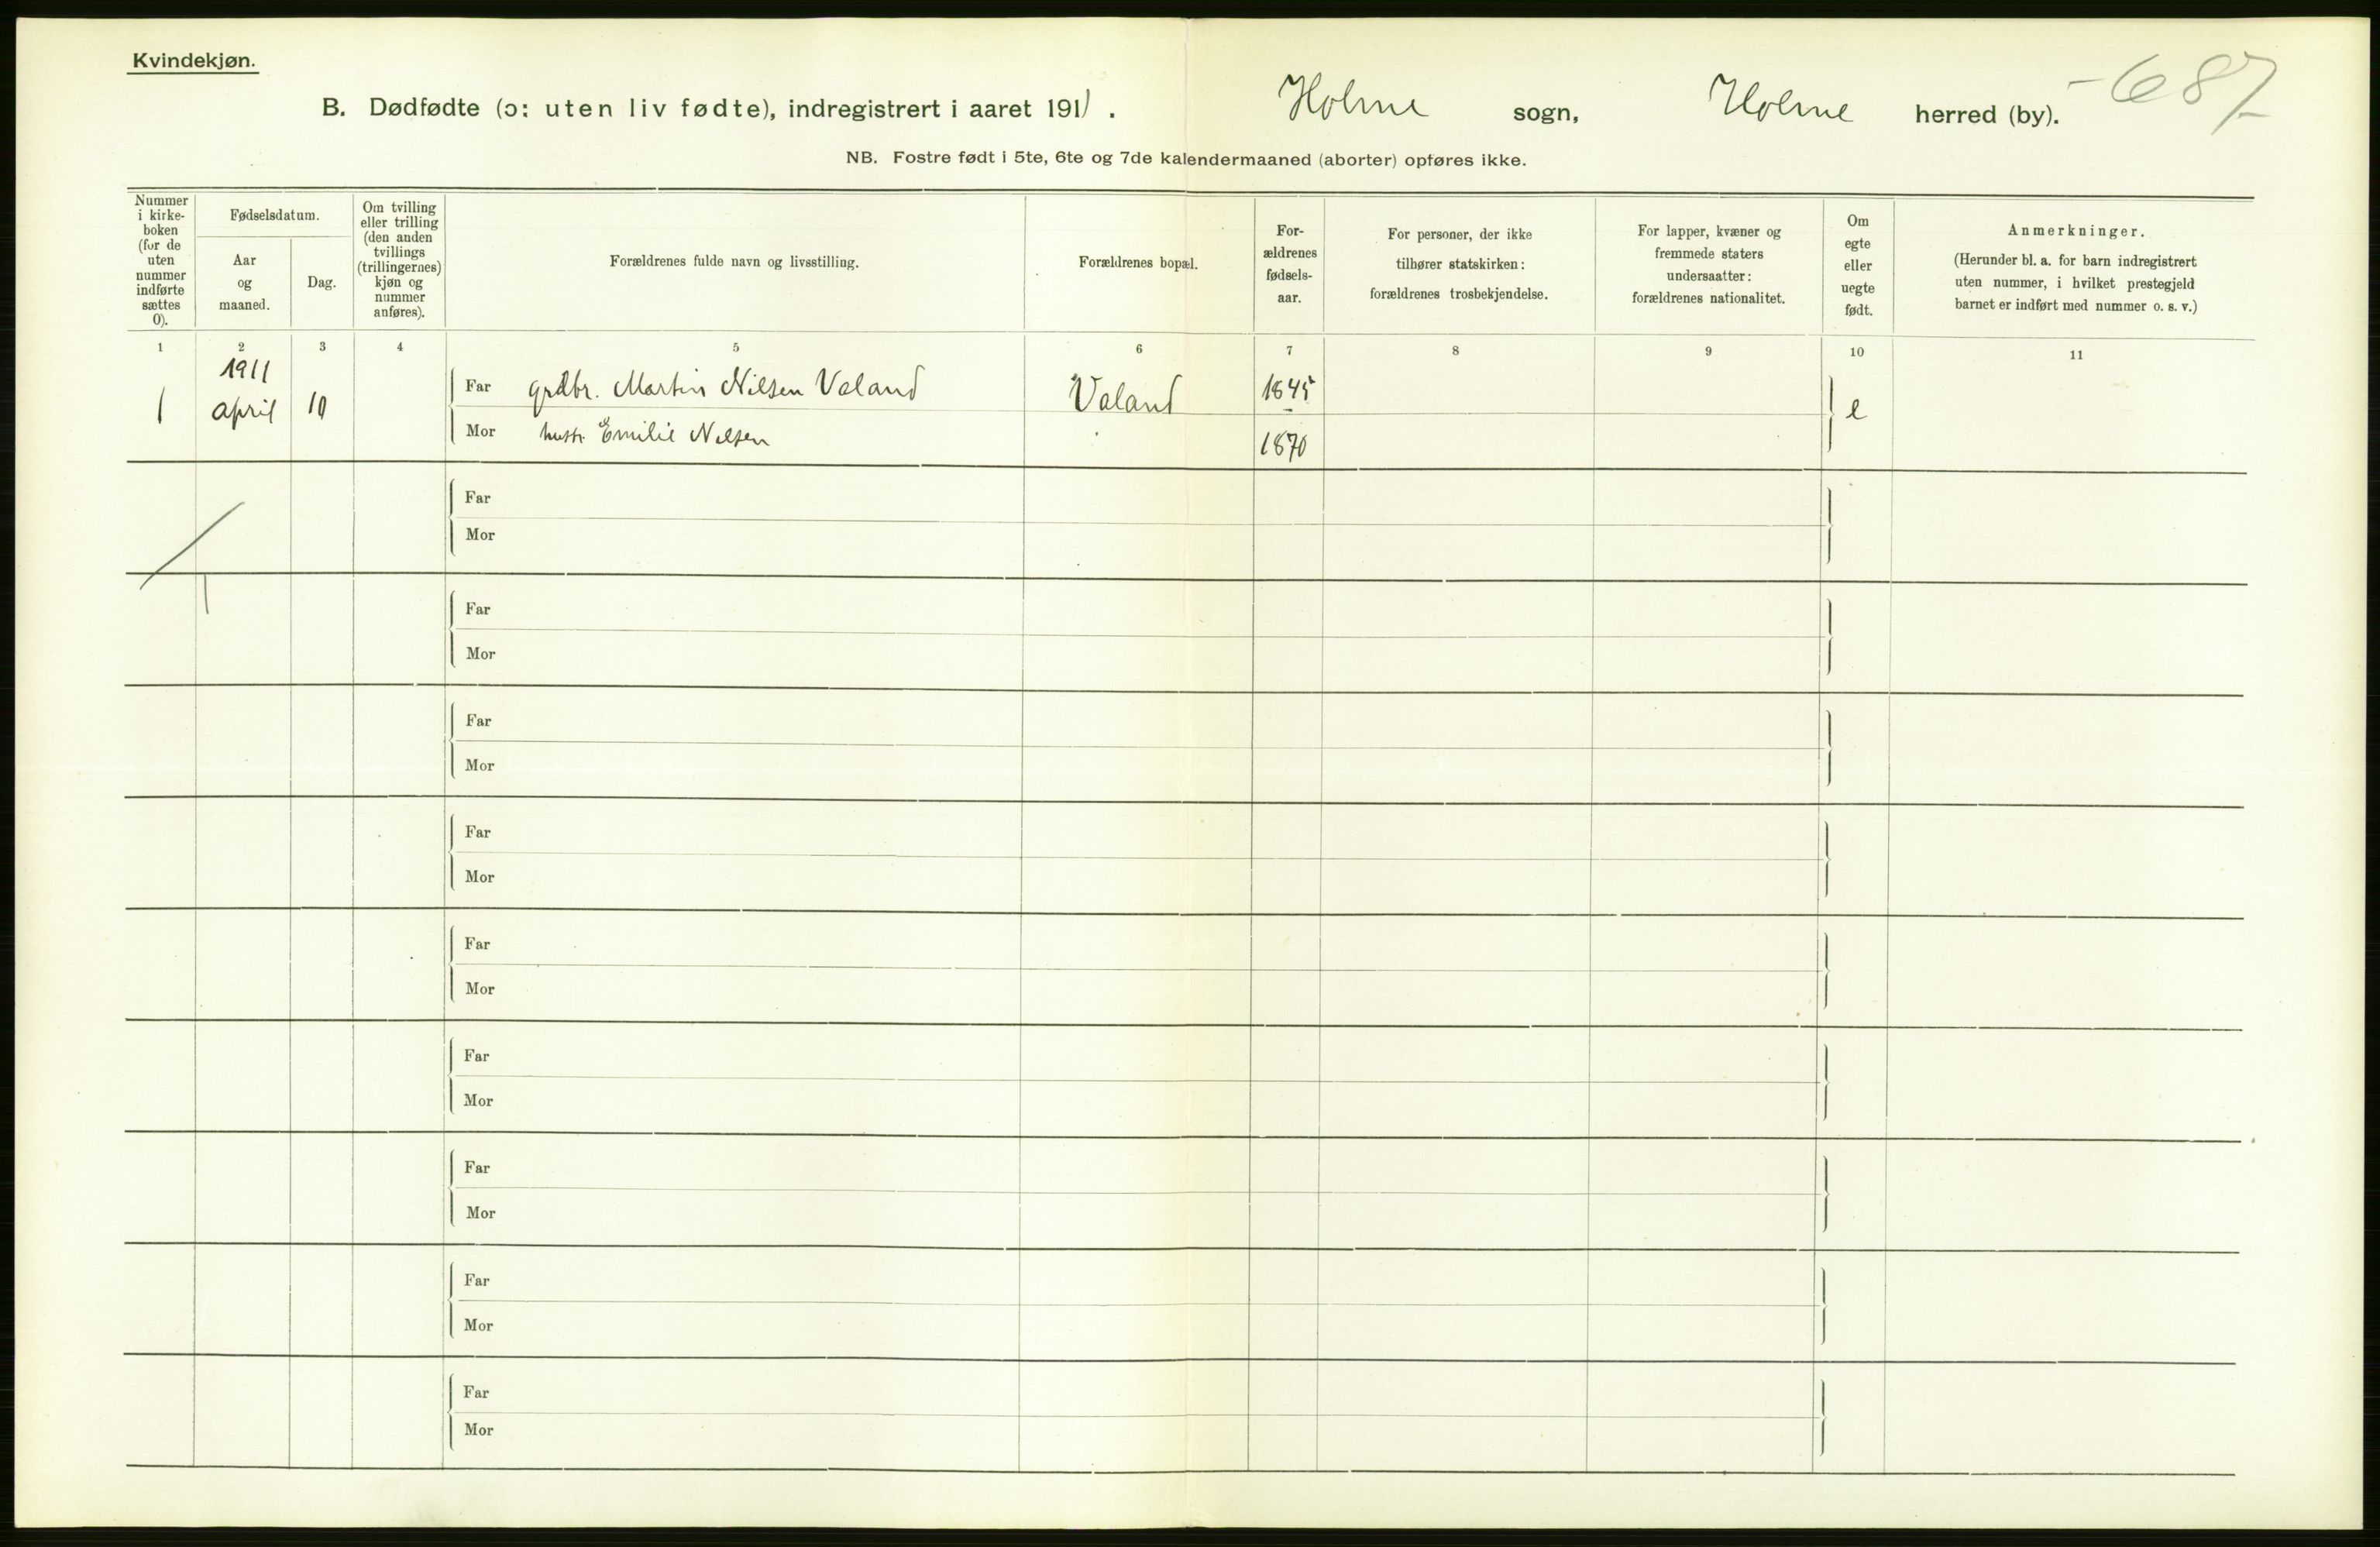 Kvindekjøn.
B. Dødfødte (ɔ: uten liv fødte), indregistrert i aaret 1911. Holme sogn, Holme herred (by). -687
NB. Fostre født i 5te, 6te og 7de kalendermaaned (aborter) opføres ikke.
Nummer
i kirke-
boken
(for de
uten
nummer
indførte
sættes
0).
Fødselsdatum.
Aar
og
maaned.
Dag.
Om tvilling
eller trilling
(den anden
tvillings
(trillingernes)
kjøn og
nummer
anføres).
Forældrenes fulde navn og livsstilling.
Forældrenes bopæl.
For-
ældrenes
fødsels-
aar.
For personer, der ikke
tilhører statskirken:
forældrenes trosbekjendelse.
For lapper, kvæner og
fremmede staters
undersaatter:
forældrenes nationalitet.
Om
egte
eller
uegte
født.
Anmerkninger.
(Herunder bl. a. for barn indregistrert
uten nummer, i hvilket prestegjeld
barnet er indført med nummer o. s. v.)
1 2 3 4 5 6 7 8 9 10 11
1911
1 april 10 Far grdbr. Martin Nilsen Valand Valand 1845 e
Mor hustr. Emilie Nilsen 1870
Far
Mor
Far
Mor
Far
Mor
Far
Mor
Far
Mor
Far
Mor
Far
Mor
Far
Mor
Far
Mor